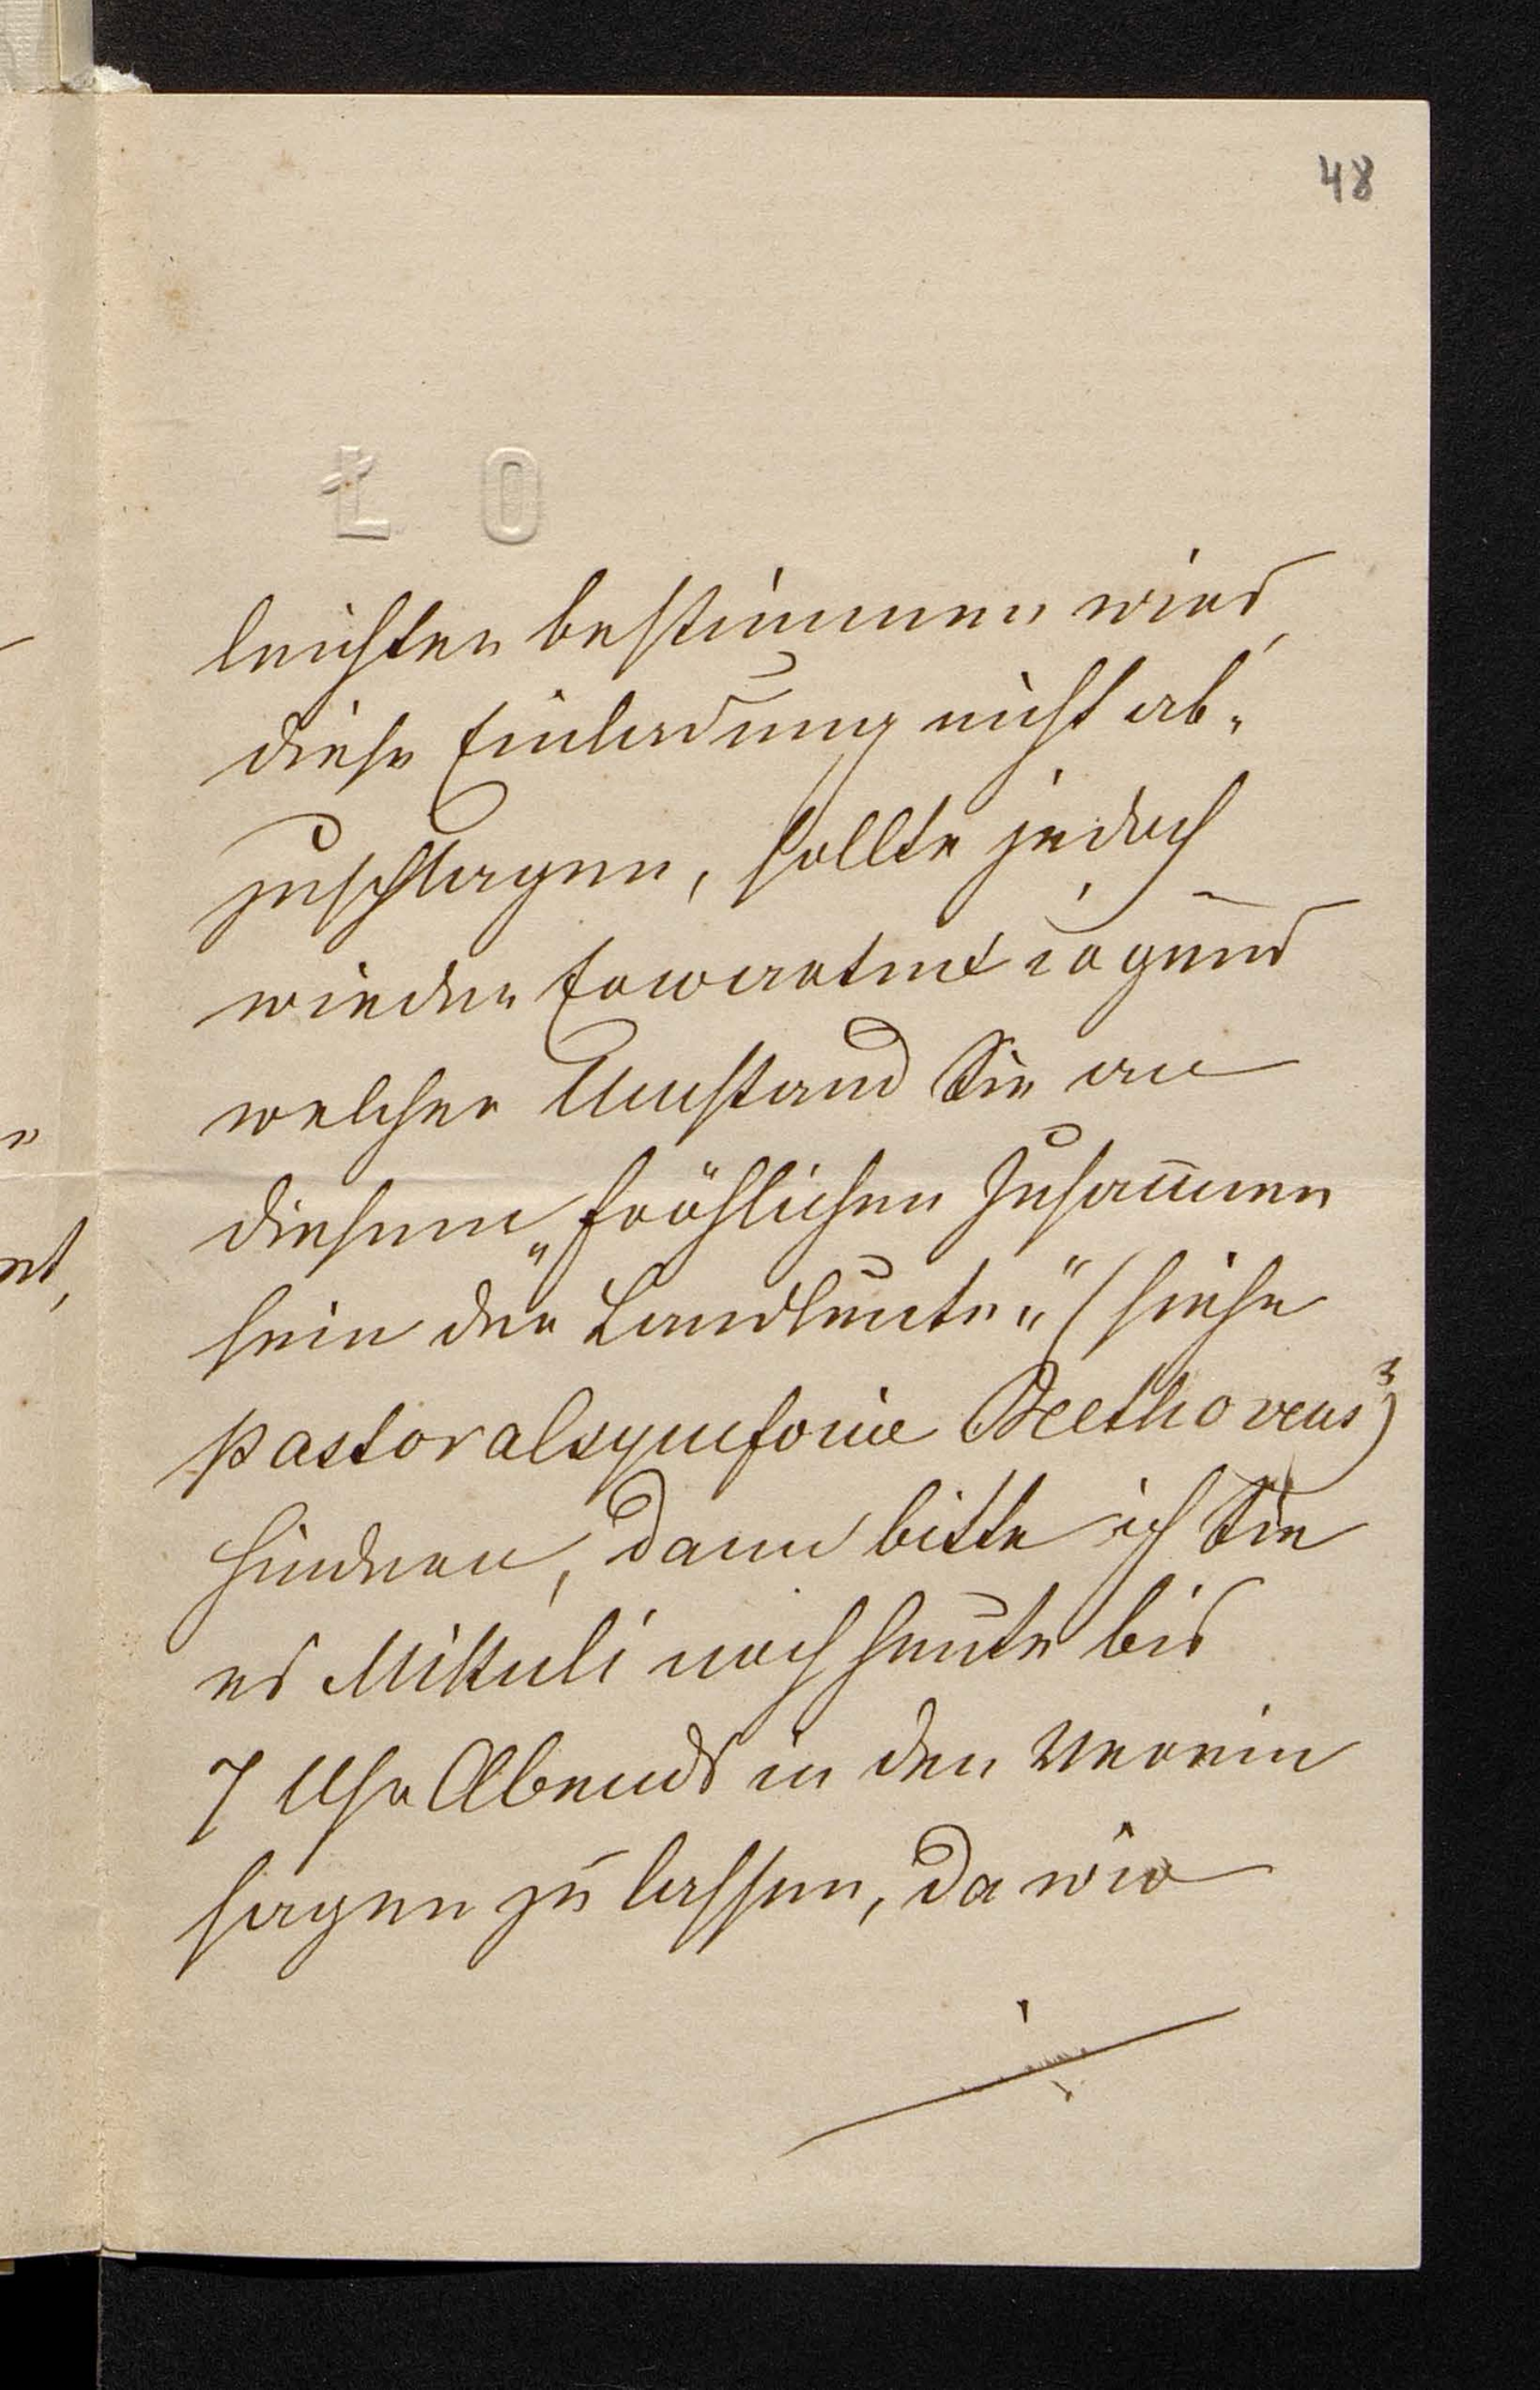 48
Ł O
leichter bestimmen wird,
diese Einladung nicht ab-
zuschlagen, sollte jedoch
wieder Erwarten irgend
welcher Umstand Sie an
diesem „fröhlichen Zusammen
sein der Landleute“ (siehe
Pastoralsymfonie Beethovens)
hindern, dann bitte ich Sie
es Mikuli noch heute bis
7 Uhr Abends in den Verein
sagen zu lassen, da wir